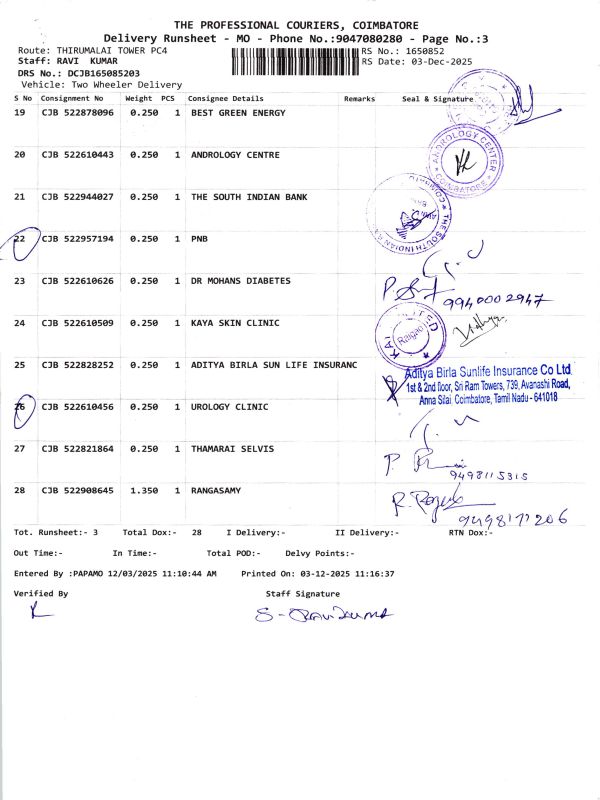 THE PROFESSIONAL COURIERS, COIMBATORE
Delivery Runsheet - MO - Phone No.:9047080280 - Page No.:3
Route: THIRUMALAI TOWER PC4 RS No.: 1650852
Staff: RAVI KUMAR RS Date: 03-Dec-2025
DRS No.: DCJB165085203
Vehicle: Two Wheeler Delivery
S No Consignment No Weight PCS Consignee Details Remarks Seal & Signature
19 CJB 522878096 0.250 1 BEST GREEN ENERGY
20 CJB 522610443 0.250 1 ANDROLOGY CENTRE
ANDROLOGY CENTER
COIMBATORE
21 CJB 522944027 0.250 1 THE SOUTH INDIAN BANK
THE SOUTH INDIAN
22 CJB 522957194 0.250 1 PNB
23 CJB 522610626 0.250 1 DR MOHANS DIABETES
9940002947
24 CJB 522610509 0.250 1 KAYA SKIN CLINIC
25 CJB 522828252 0.250 1 ADITYA BIRLA SUN LIFE INSURANC
Aditya Birla Sunlife Insurance Co Ltd
1st & 2nd floor, Sri Ram Towers, 739, Avanashi Road,
Anna Silai, Coimbatore, Tamil Nadu - 641018
26 CJB 522610456 0.250 1 UROLOGY CLINIC
27 CJB 522821864 0.250 1 THAMARAI SELVIS
9498115315
28 CJB 522908645 1.350 1 RANGASAMY
Tot. Runsheet:- 3 Total Dox:- 28 I Delivery:- II Delivery:- RTN Dox:-
Out Time:- In Time:- Total POD:- Delvy Points:-
Entered By :PAPAMO 12/03/2025 11:10:44 AM Printed On: 03-12-2025 11:16:37
Verified By Staff Signature